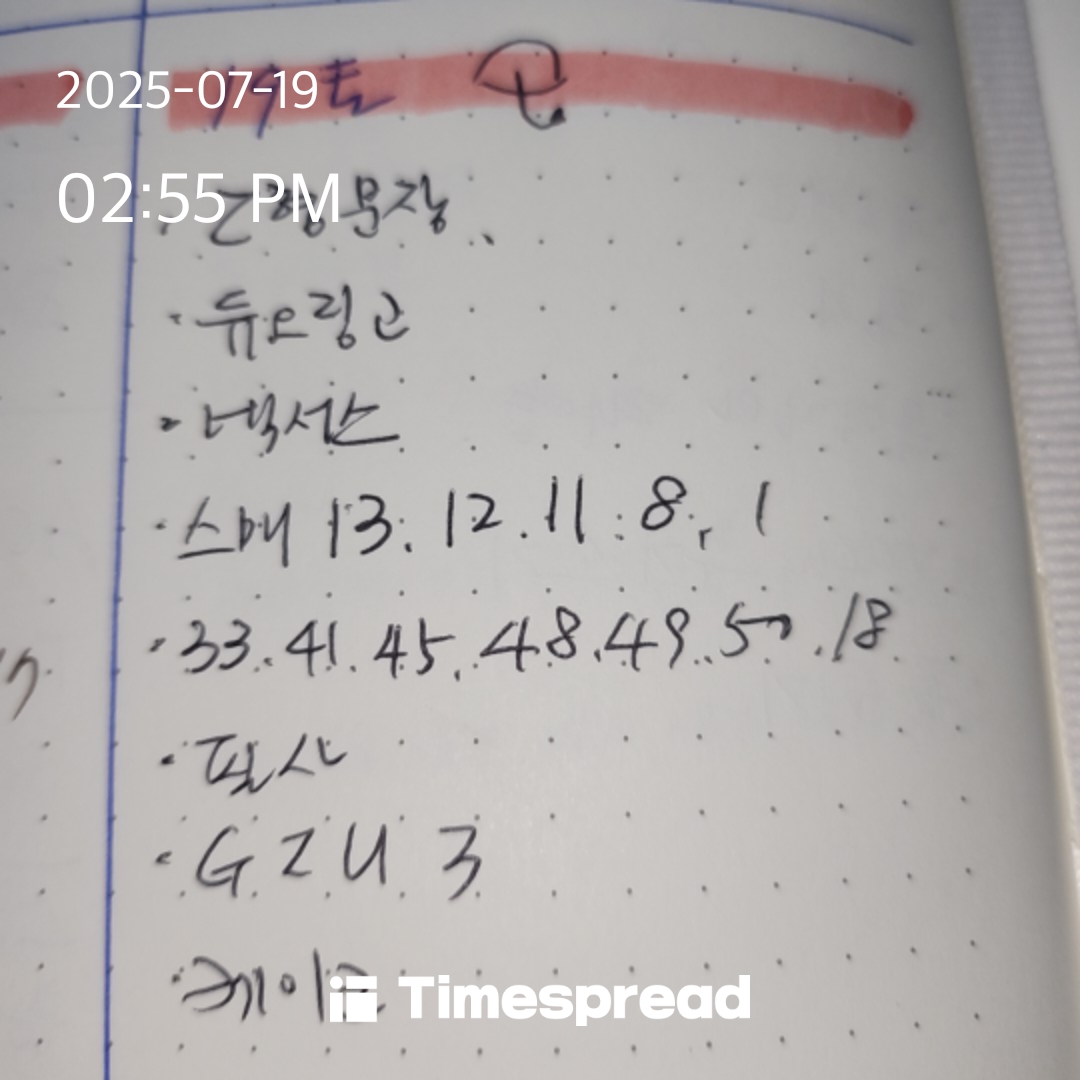 2025-07-19
19 토
02:55 PM
문장
· 듀오링고
· 넥서스
· 스매 13. 12. 11. 8, 1
· 33. 41. 45. 48. 49. 50. 18
· 필사
· G Z U 3
· 케이크
Timespread